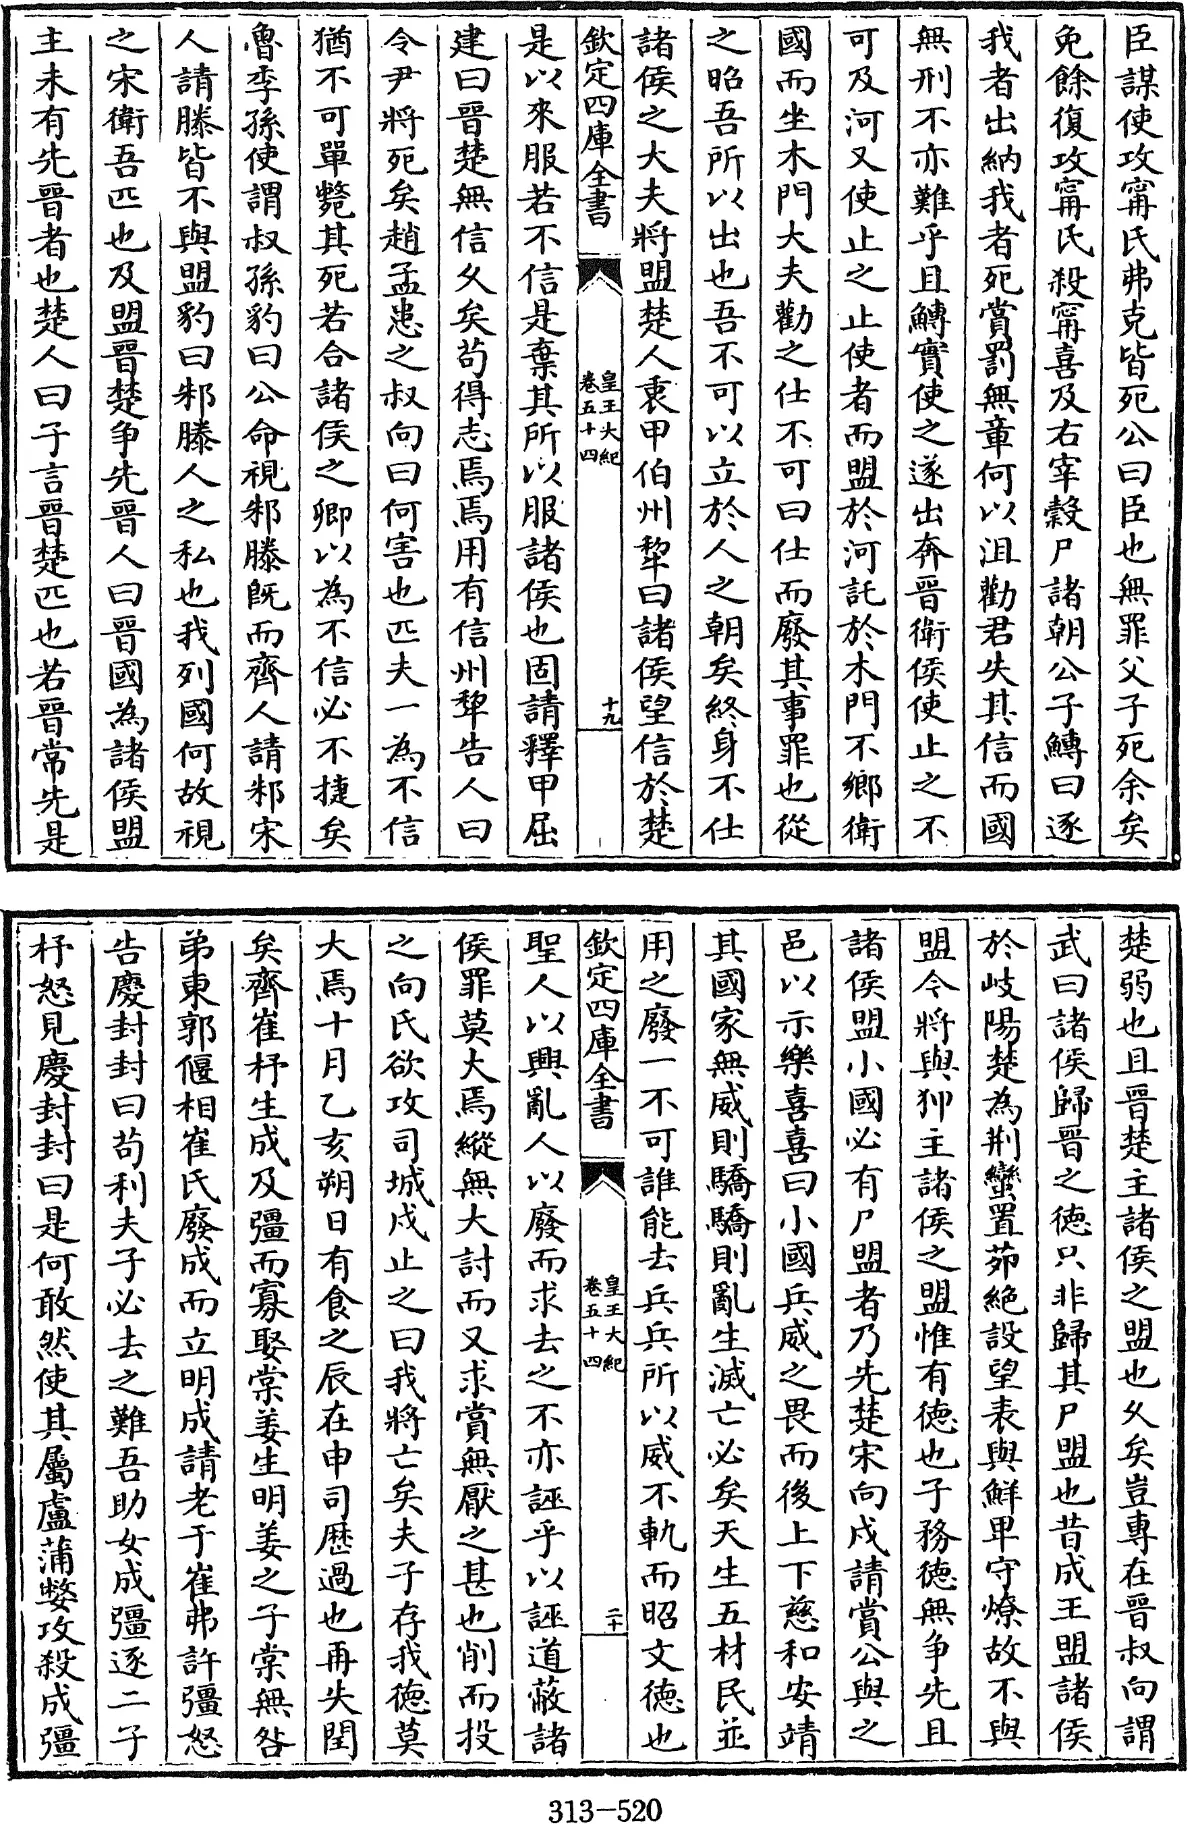 臣謀使攻寗氏弗克皆死公曰臣也無罪父子死余矣
免餘復攻寗氏殺寗喜及右宰穀尸諸朝公子鱄曰逐
我者出納我者死賞罰無章何以沮勸君失其信而國
無刑不亦難乎且鱄實使之遂出奔晉衛侯使止之不
可及河又使止之止使者而盟於河託於木門不鄉衛
國而坐木門大夫勸之仕不可曰仕而廢其事罪也從
之昭吾所以出也吾不可以立於人之朝矣終身不仕
諸侯之大夫將盟楚人衷甲伯州犂曰諸侯望信於楚
欽定四庫全書
皇王大紀
卷五十四
十九
是以來服若不信是棄其所以服諸侯也固請釋甲屈
建曰晉楚無信久矣苟得志焉焉用有信州犂告人曰
令尹將死矣趙孟患之叔向曰何害也匹夫一為不信
猶不可單斃其死若合諸侯之卿以為不信必不捷矣
魯季孫使謂叔孫豹曰公命視邾滕既而齊人請邾宋
人請滕皆不與盟豹曰邾滕人之私也我列國何故視
之宋衛吾匹也及盟晉楚争先晉人曰晉國為諸侯盟
主未有先晉者也楚人曰子言晉楚匹也若晉常先是
楚弱也且晉楚主諸侯之盟也久矣豈專在晉叔向謂
武曰諸侯歸晉之德只非歸其尸盟也昔成王盟諸侯
於岐陽楚為荆蠻置茆絶設望表與鮮卑守燎故不與
盟令將與狎主諸侯之盟惟有德也子務德無争先且
諸侯盟小國必有尸盟者乃先楚宋向戌請賞公與之
邑以示樂喜喜曰小國兵威之畏而後上下慈和安靖
其國家無威則驕驕則亂生滅亡必矣天生五材民並
用之廢一不可誰能去兵兵所以威不軌而昭文德也
欽定四庫全書
皇王大紀
卷五十四
二十
聖人以興亂人以廢而求去之不亦誣乎以誣道蔽諸
侯罪莫大焉縱無大討而又求賞無厭之甚也削而投
之向氏欲攻司城戌止之曰我將亡矣夫子存我德莫
大焉十月乙亥朔日有食之辰在申司歴過也再失閏
矣齊崔杼生成及彊而寡娶棠姜生明姜之子棠無咎
弟東郭偃相崔氏廢成而立明成請老于崔弗許彊怒
告慶封封曰苟利夫子必去之難吾助女成彊逐二子
杼怒見慶封封曰是何敢然使其屬盧蒲嫳攻殺成彊
313-520